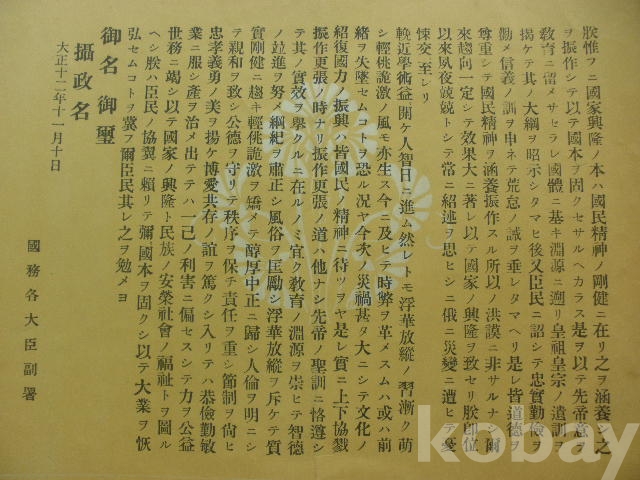 朕惟フニ國家興隆ノ本ハ國民精神ノ剛健ニ在リ之ヲ涵養シ之
ヲ振作シ以テ國本ヲ固クセサルヘカラス是ヲ以テ先帝意ヲ
敎育ニ留メサセラレ國體ニ基キ淵源ニ遡リ皇祖皇宗ノ遺訓ヲ
揭ケテ其ノ大綱ヲ昭示シタマヒ後又臣民ニ詔シテ忠實勤儉ヲ
勸メ信義ノ訓ヲ申ネテ荒怠ノ誡ヲ垂レタマヘリ是レ皆道德ヲ
尊重シテ國民精神ヲ涵養振作スル所以ノ洪謨ニ非サルナシ爾
來趨向一定シテ效果大ニ著レ以テ國家ノ興隆ヲ致セリ朕卽位
以來夙夜兢兢トシテ常ニ紹述ヲ思ヒシニ俄ニ災變ニ遭ヒテ憂
悚交至レリ
輓近學術益開ケ人智日ニ進ム然レトモ浮華放縱ノ習漸ク萌
シ輕佻詭激ノ風モ亦生ス今ニ及ヒテ時弊ヲ革メスムハ或ハ前
緖ヲ失墜セムコトヲ恐ル況ヤ今次ノ災禍甚タ大ニシテ文化ノ
紹復國力ノ振興ハ皆國民ノ精神ニ待ツヲヤ是レ實ニ上下協戮
振作更張ノ時ナリ振作更張ノ道ハ他ナシ先帝ノ聖訓ニ恪遵シ
テ其ノ實效ヲ擧クルニ在ルノミ宜ク敎育ノ淵源ヲ崇ヒテ智德
ノ竝進ヲ努メ綱紀ヲ肅正シ風俗ヲ匡勵シ浮華放縱ヲ斥ケテ質
實剛健ニ趨キ輕佻詭激ヲ矯メテ醇厚中正ニ歸シ人倫ヲ明ニシ
テ親和ヲ致シ公德ヲ守リテ秩序ヲ保チ責任ヲ重シ節制ヲ尙ヒ
忠孝義勇ノ美ヲ揚ケ博愛共存ノ誼ヲ篤クシ入リテハ恭儉勤敏
業ニ服シ產ヲ治メ出テテハ一己ノ利害ニ偏セスシテ力ヲ公益
世務ニ竭シ以テ國家ノ興隆ト民族ノ安榮社會ノ福祉トヲ圖ル
ヘシ朕ハ臣民ノ協翼ニ賴リテ彌國本ヲ固クシ以テ大業ヲ恢
弘セムコトヲ冀フ爾臣民其レ之ヲ勉メヨ
御名 御璽
攝政名
大正十二年十一月十日
國務各大臣副署
kobay